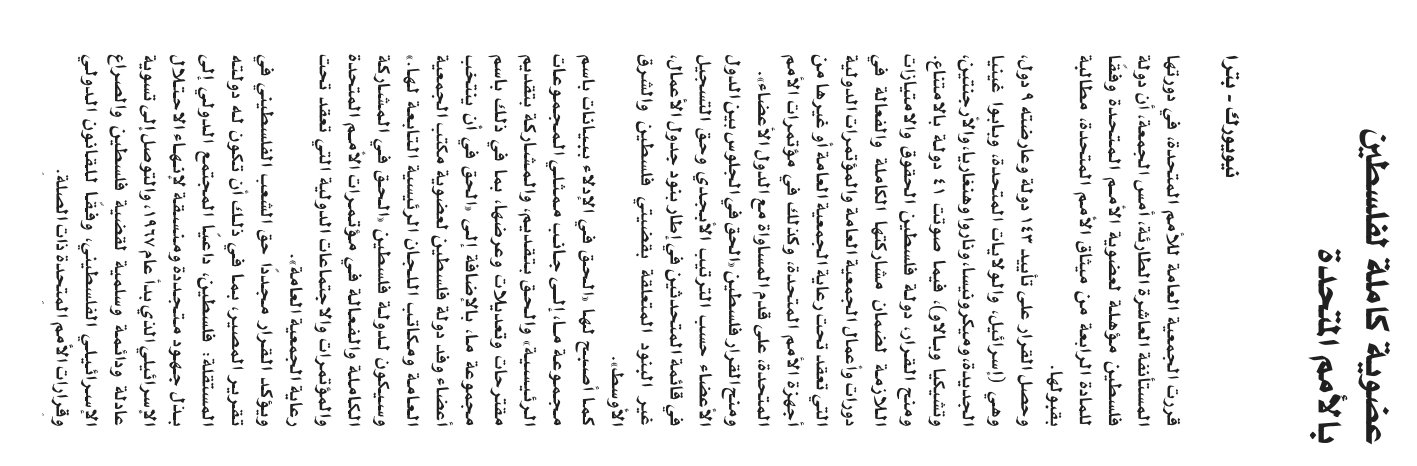 عضوية كاملة لفلسطين
بالأمم المتحدة
نيويورك - بترا
قررت الجمعية العامة للأمم المتحدة، في دورتها
المستأنفة العاشرة الطارئة، أمس الجمعة، أن دولة
فلسطين مؤهلة لعضوية الأمم المتحدة وفقًا
للمادة الرابعة من ميثاق الأمم المتحدة، مطالبة
بقبولها.
وحصل القرار على تأييد ١٤٣ دولة وعارضته ٩ دول،
وهي (إسرائيل، والولايات المتحدة، وبابوا غينيا
الجديدة، وميكرونيسيا، وناروا وهنغاريا، والأرجنتين،
وتشيكيا وبالاو)، فيما صوتت ٤١ دولة بالامتناع.
ومنح القرار، دولة فلسطين الحقوق والامتيازات
اللازمة لضمان مشاركتها الكاملة والفعالة في
دورات وأعمال الجمعية العامة والمؤتمرات الدولية
التي تعقد تحت رعاية الجمعية العامة أو غيرها من
أجهزة الأمم المتحدة، وكذلك في مؤتمرات الأمم
المتحدة، على قدم المساواة مع الدول الأعضاء».
ومنح القرار فلسطين «الحق في الجلوس بين الدول
الأعضاء حسب الترتيب الأبجدي وحق التسجيل
في قائمة المتحدثين في إطار بنود جدول الأعمال،
غير البنود المتعلقة بقضيتي فلسطين والشرق
الأوسط».
كما أصبح لها «الحق في الإدلاء ببيانات باسم
مجموعة ما، إلى جانب ممثلي المجموعات
الرئيسية» والحق بتقديم، والمشاركة بتقديم
مقترحات وتعديلات وعرضها، بما في ذلك باسم
مجموعة ما، بالإضافة إلى «الحق في أن ينتخب
أعضاء وفد دولة فلسطين لعضوية مكتب الجمعية
العامة ومكاتب اللجان الرئيسية التابعة لها».
وسيكون لدولة فلسطين «الحق في المشاركة
الكاملة والفعالة في مؤتمرات الأمم المتحدة
والمؤتمرات والاجتماعات الدولية التي تعقد تحت
رعاية الجمعية العامة».
ويؤكد القرار مجددًا حق الشعب الفلسطيني في
تقرير المصير، بما في ذلك أن تكون له دولته
المستقلة: فلسطين، داعيًا المجتمع الدولي إلى
بذل جهود متجددة ومنسقة لانهاء الاحتلال
الإسرائيلي الذي بدأ عام ١٩٦٧، والتوصل إلى تسوية
عادلة ودائمة وسلمية لقضية فلسطين والصراع
الإسرائيلي الفلسطيني، وفقًا للقانون الدولي
وقرارات الأمم المتحدة ذات الصلة.